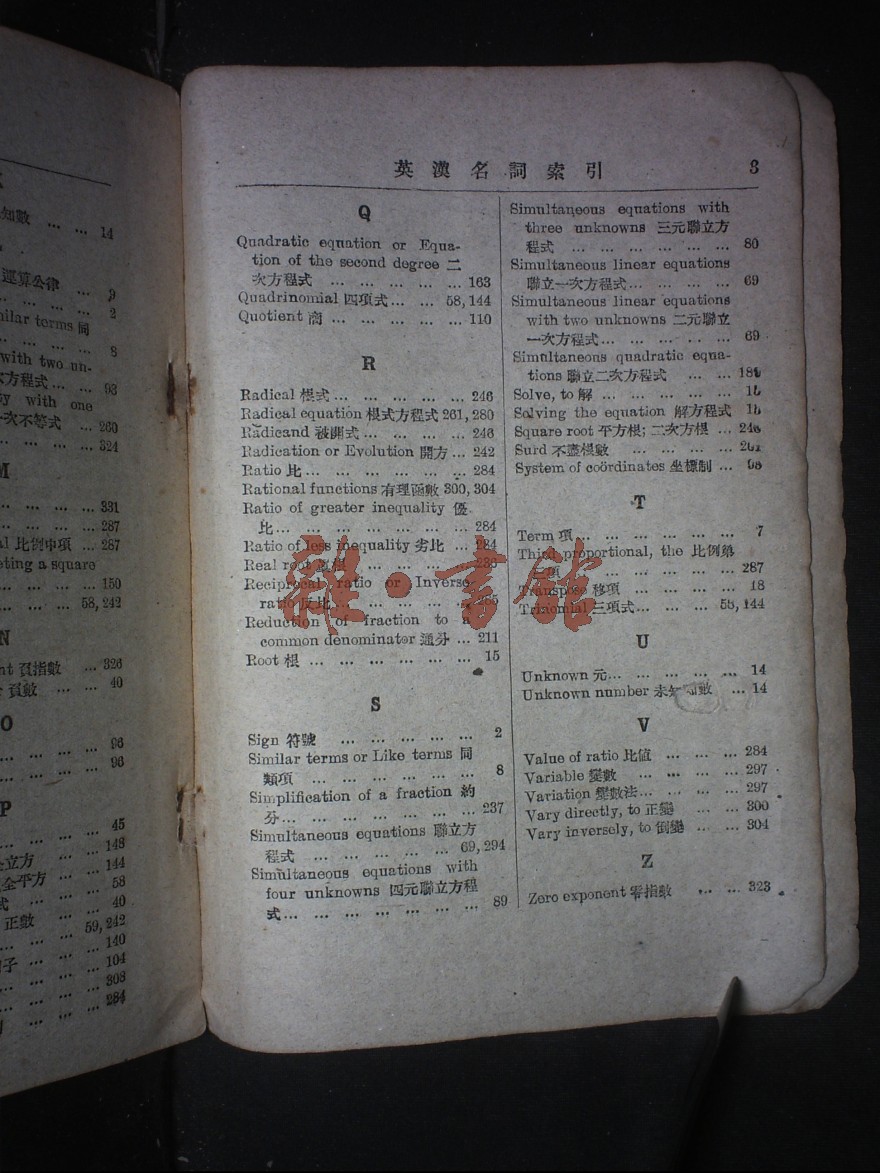 知數 ... ... 14
運算公律 ... 9
... ... ... 2
ilar terms 同
... ... ... 8
with two un-
方程式 ... ... 93
with one
一次不等式 ... 260
... ... ... 324
M
... ... ... ... 331
... ... ... ... 287
al 比例中項 ... 287
eting a square
... ... ... ... 150
... ... ... 58, 242
N
nt 負指數 ... 326
負數 ... ... 40
O
... ... ... ... 96
... ... ... ... 96
P
... ... ... ... 45
立方 ... ... 148
全平方 ... ... 144
式 ... ... ... 58
... ... ... 40
正數 ... ... 59, 242
... ... ... 140
子 ... ... ... 104
... ... ... ... 308
... ... ... 284
英漢名詞索引 3
Q
Quadratic equation or Equa-
tion of the second degree 二
次方程式 ... ... ... ... ... 163
Quadrinomial 四項式 ... ... 58, 144
Quotient 商 ... ... ... ... ... 110
R
Radical 根式 ... ... ... ... ... 246
Radical equation 根式方程式 261, 280
Radicand 被開式 ... ... ... ... 246
Radication or Evolution 開方 ... 242
Ratio 比 ... ... ... ... ... ... 284
Rational functions 有理函數 300, 304
Ratio of greater inequality 優
比 ... ... ... ... ... ... ... 284
Ratio of less inequality 劣比 ... 284
Real root 實根 ... ... ... ...
Reciprocal ratio or Inverse
ratio 反比 ... ... ... ... ...
Reduction of fraction to a
common denominator 通分 ... 211
Root 根 ... ... ... ... ... ... 15
S
Sign 符號 ... ... ... ... ... 2
Similar terms or Like terms 同
類項 ... ... ... ... ... ... 8
Simplification of a fraction 約
分 ... ... ... ... ... ... ... 237
Simultaneous equations 聯立方
程式 ... ... ... ... ... 69, 294
Simultaneous equations with
four unknowns 四元聯立方程
式 ... ... ... ... ... ... ... 89
Simultaneous equations with
three unknowns 三元聯立方
程式 ... ... ... ... ... ... 80
Simultaneous linear equations
聯立一次方程式 ... ... ... ... 69
Simultaneous linear equations
with two unknowns 二元聯立
一次方程式 ... ... ... ... ... 69
Simultaneous quadratic equa-
tions 聯立二次方程式 ... ...
Solve, to 解 ... ... ... ... ...
Solving the equation 解方程式
Square root 平方根; 二次方根 ...
Surd 不盡根數 ... ... ... ...
System of coördinates 坐標制 ...
T
Term 項 ... ... ... ... ... ... 7
Third proportional, the 比例第
項 ... ... ... ... ... ... 287
Transpose 移項 ... ... ... ... 18
Trinomial 三項式 ... ... ... 144
U
Unknown 元 ... ... ... ... ... 14
Unknown number 未知數 ... 14
V
Value of ratio 比値 ... ... ... 284
Variable 變數 ... ... ... ... 297
Variation 變數法 ... ... ... ... 297
Vary directly, to 正變 ... ... 300
Vary inversely, to 倒變 ... ... 304
Z
Zero exponent 零指數 ... ... 323
雅·書館